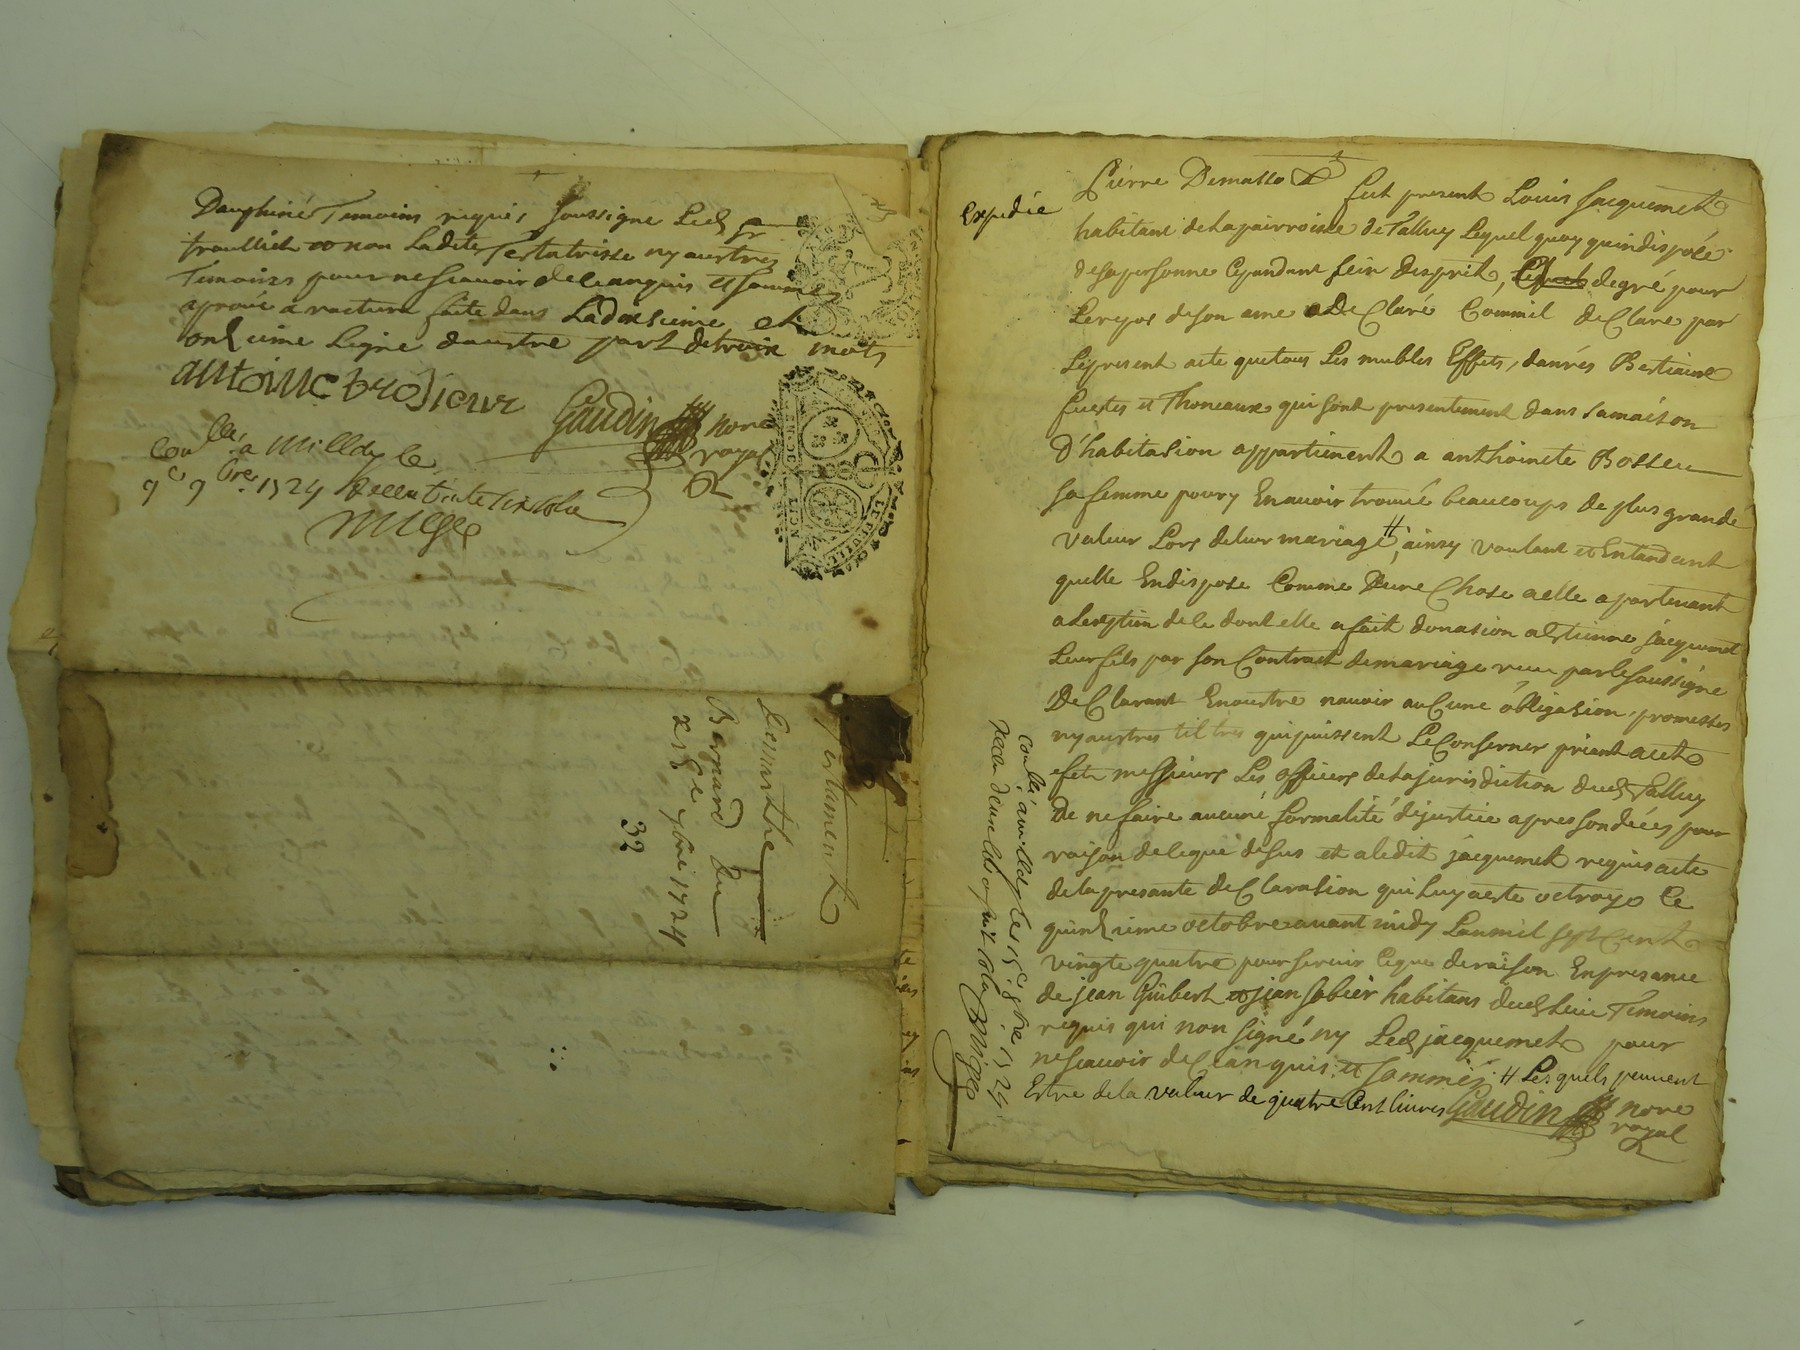 Dauphiné Temoins requis soussigné Led Sr
trouilliet et non Ladite Testatrisse ny austres
Temoins pour ne scauoir de ce anquis et sommés
aprouué a racture faite dans La dousieme et
ondzieme Ligne daustre part de trois mots
antoine brosiour
Gaudin nore
royal
Coullé a Milldy le
9e 9bre 1724 Receu
Miege
Testament
Bernard du
7bre 1724
32
Expedié
Pierre Demasso
fut present Louis Jacquemet
habitant de la parroisse de Talluy Lequel quoy quindisposé
de sa personne cepandant sein desprit, de gré pour
Le repos de son ame a De Claré Comm'il de Clare par
Le present acte que tous Les mubles Effets, danrés Bestiaux
fustes et Thoneaux qui sont presentement dans sa maison
D'habitasion appartienent a anthoinete Bosseu
sa femme pour y En auoir trouué beaucoups de plus grande
valeur Lors de leur mariage # ainsy voulant et Entandant
quelle En dispose Comme D'une Chose a elle apartenant
a Lexseption de le dont elle a fait donasion a Estienne jacquemet
Leur fils par son Contract de mariage receu par le soussigné
De Clarant En oustre nauoir auCune obligasion, promesses
ny austres tiltres qui puissent Le Conserner priant a cet
efet messieurs Les officiers de la jurisdiction dud Talluy
De ne faire aucune formalité de justice apres son décés pour
raison de le que desus et a ledit jacquemet requis acte
de la presante de Clarasion qui luy a este octroyé Le
quindzieme octobre auant midy Lan mil sept Cent
vingte quatre pour seruir Ce que de raison En presance
de jean Guibert et jean fabier habitans dud Lieu Temoins
requis qui non signé ny Led jacquemet pour
ne scauoir de C'anquis et sommés # Les quels peuuent
Estre de la valeur de quatre Cent liures Gaudin nore
royal
Coullé a milldy le 15e 9bre 1724
Receu Miege